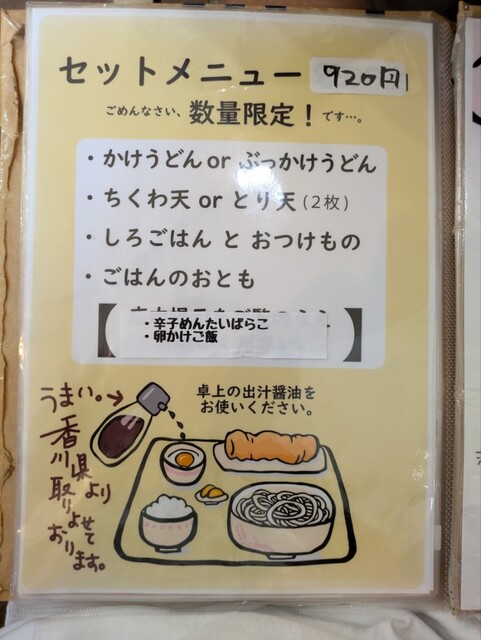 セットメニュー 920円
ごめんなさい、数量限定!です…。
・かけうどん or ぶっかけうどん
・ちくわ天 or とり天(2枚)
・しろごはん と おつけもの
・ごはんのおとも
【
・辛子めんたいばらこ
・卵かけご飯
】
卓上の出汁醤油を
お使いください。
うまい。→
香川県より
取りよせて
おります。